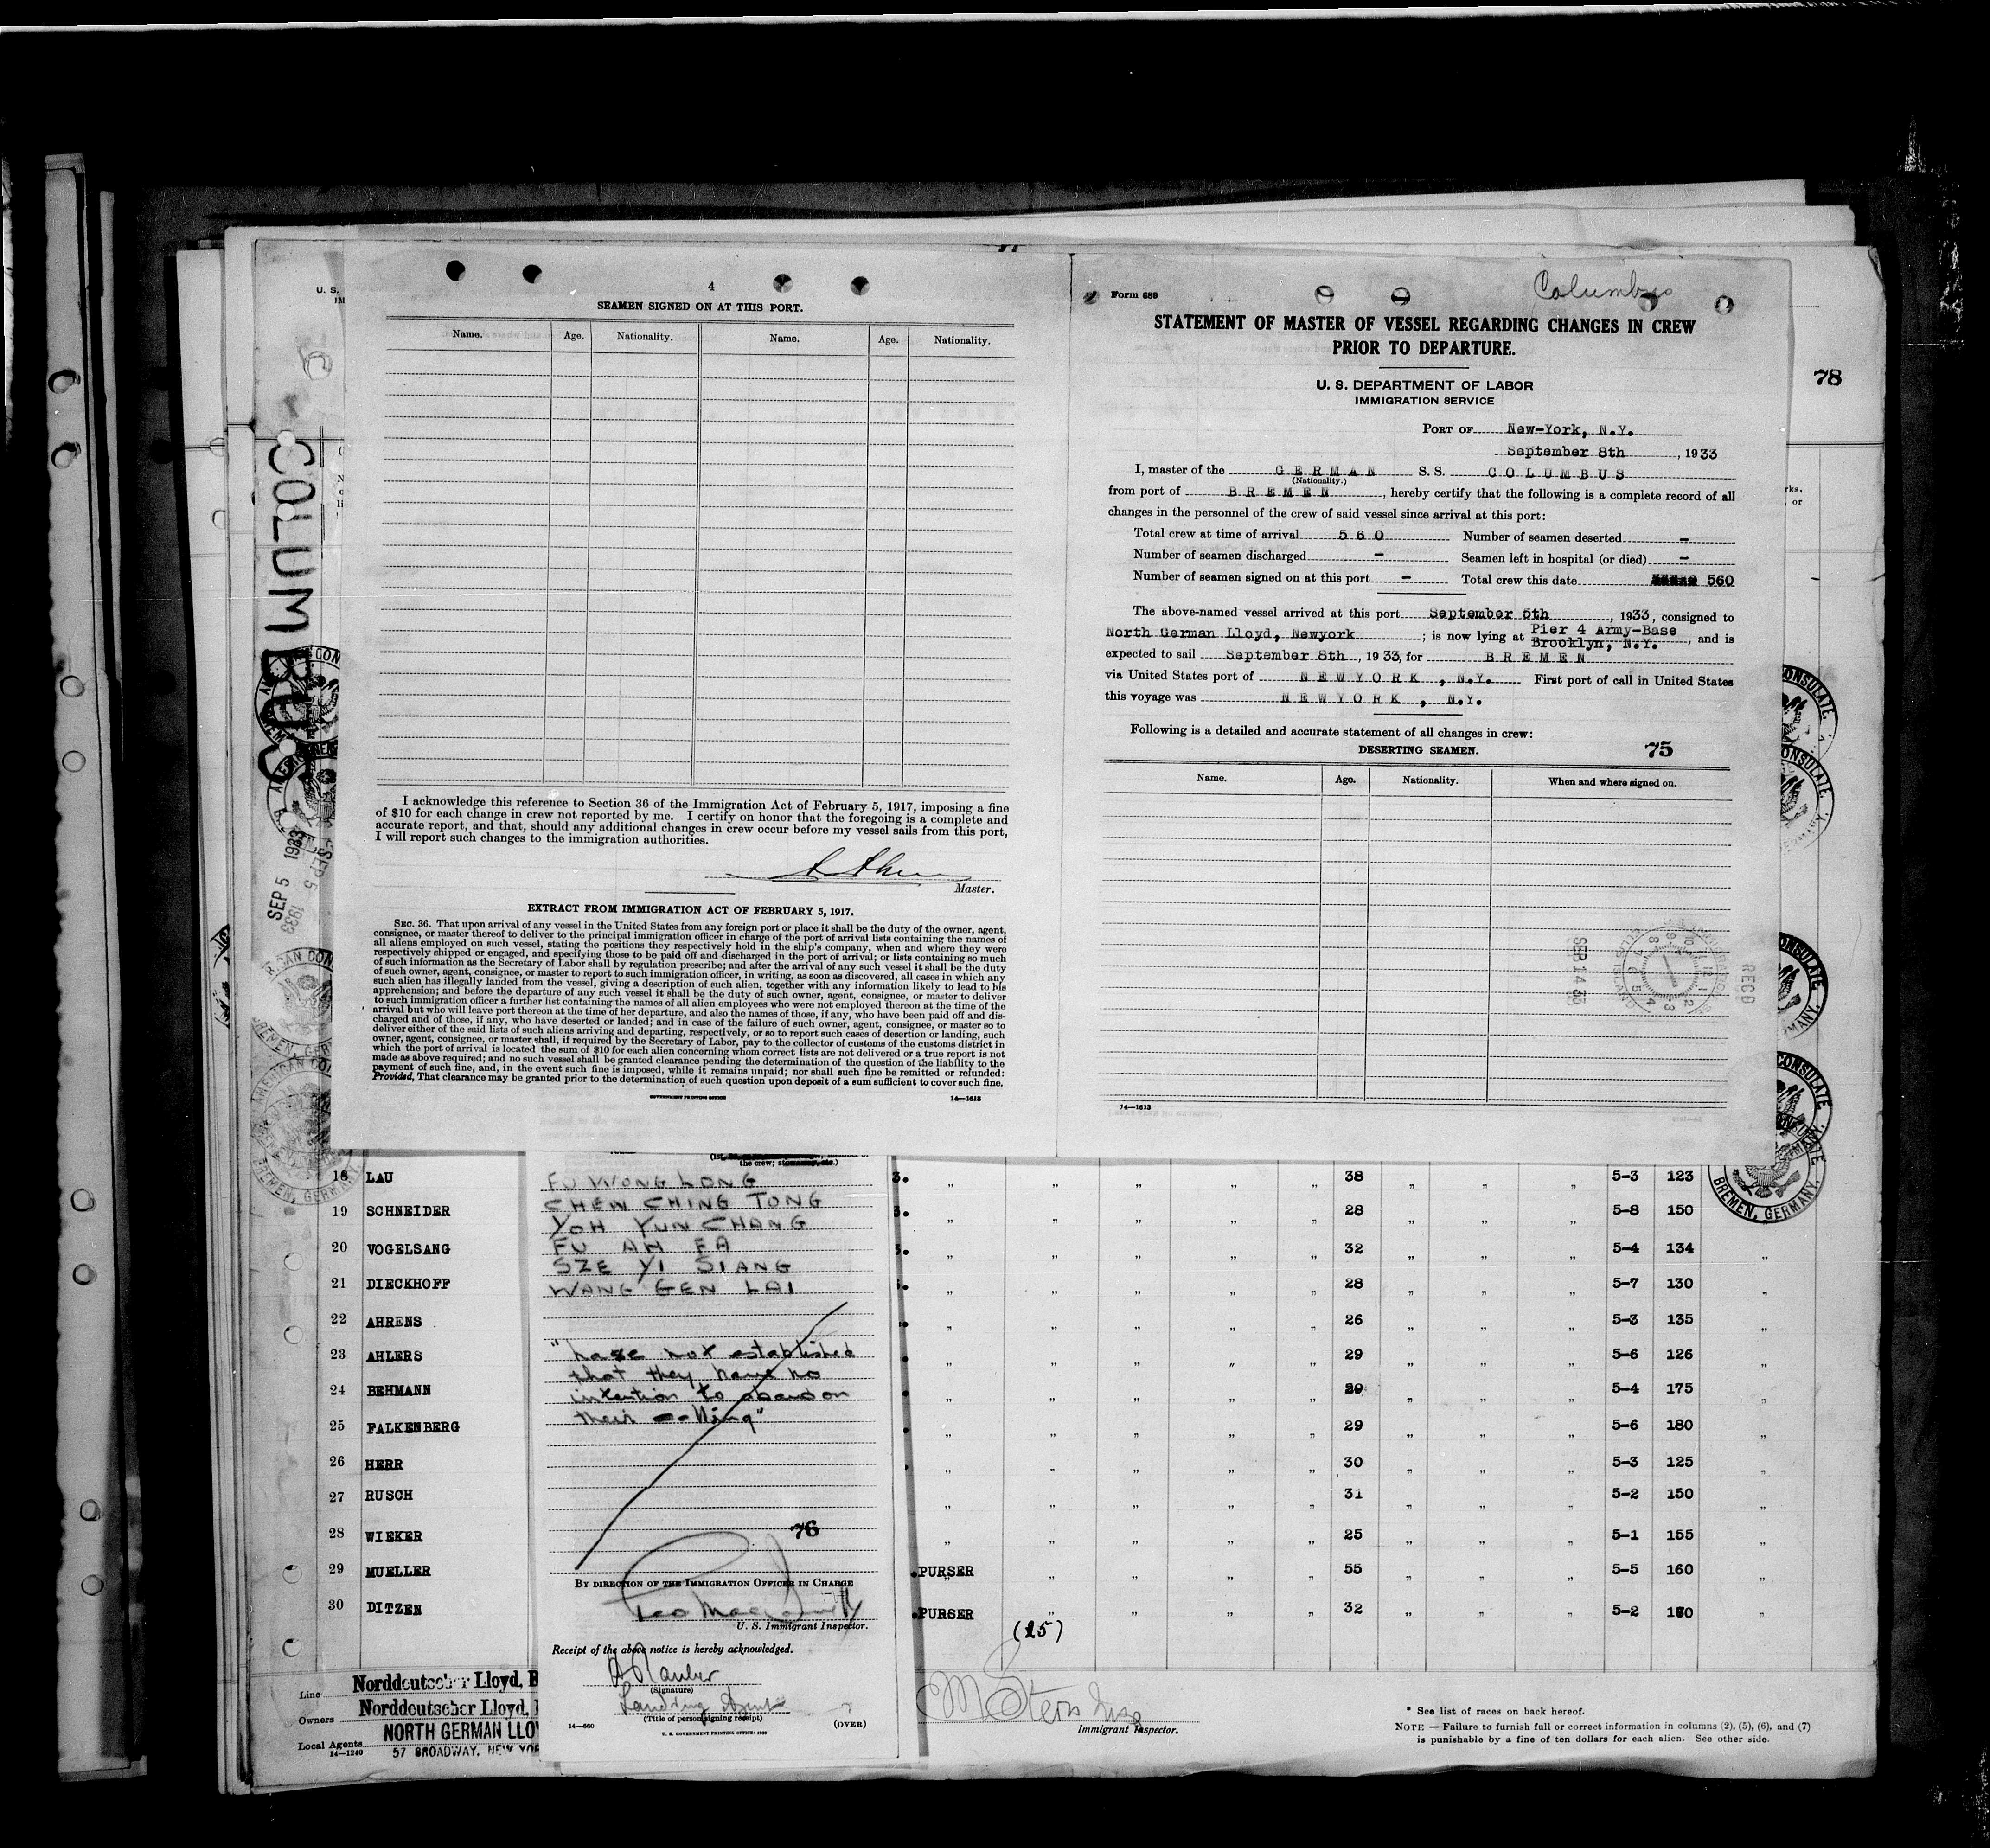 4
SEAMEN SIGNED ON AT THIS PORT.
Name. Age. Nationality. Name. Age. Nationality.
I acknowledge this reference to Section 36 of the Immigration Act of February 5, 1917, imposing a fine
of $10 for each change in crew not reported by me. I certify on honor that the foregoing is a complete and
accurate report, and that, should any additional changes in crew occur before my vessel sails from this port,
I will report such changes to the immigration authorities.
Master.
EXTRACT FROM IMMIGRATION ACT OF FEBRUARY 5, 1917.
SEC. 36. That upon arrival of any vessel in the United States from any foreign port or place it shall be the duty of the owner, agent,
consignee, or master thereof to deliver to the principal immigration officer in charge of the port of arrival lists containing the names of
all aliens employed on such vessel, stating the positions they respectively hold in the ship's company, when and where they were
respectively shipped or engaged, and specifying those to be paid off and discharged in the port of arrival; or lists containing so much
of such information as the Secretary of Labor shall by regulation prescribe; and after the arrival of any such vessel it shall be the duty
of such owner, agent, consignee, or master to report to such immigration officer, in writing, as soon as discovered, all cases in which any
such alien has illegally landed from the vessel, giving a description of such alien, together with any information likely to lead to his
apprehension; and before the departure of any such vessel it shall be the duty of such owner, agent, consignee, or master to deliver
to such immigration officer a further list containing the names of all alien employees who were not employed thereon at the time of the
arrival but who will leave port thereon at the time of her departure, and also the names of those, if any, who have been paid off and dis-
charged and of those, if any, who have deserted or landed; and in case of the failure of such owner, agent, consignee, or master so to
deliver either of the said lists of such aliens arriving and departing, respectively, or so to report such cases of desertion or landing, such
owner, agent, consignee, or master shall, if required by the Secretary of Labor, pay to the collector of customs of the customs district in
which the port of arrival is located the sum of $10 for each alien concerning whom correct lists are not delivered or a true report is not
made as above required; and no such vessel shall be granted clearance pending the determination of the question of the liability to the
payment of such fine, and, in the event such fine is imposed, while it remains unpaid; nor shall such fine be remitted or refunded:
Provided, That clearance may be granted prior to the determination of such question upon deposit of a sum sufficient to cover such fine.
GOVERNMENT PRINTING OFFICE 14—1613
Columbus
Form 689
STATEMENT OF MASTER OF VESSEL REGARDING CHANGES IN CREW
PRIOR TO DEPARTURE.
U. S. DEPARTMENT OF LABOR
IMMIGRATION SERVICE
PORT OF New-York, N.Y.
September 8th, 1933
I, master of the GERMAN S. S. COLUMBUS
(Nationality.)
from port of BREMEN, hereby certify that the following is a complete record of all
changes in the personnel of the crew of said vessel since arrival at this port:
Total crew at time of arrival 560 Number of seamen deserted -
Number of seamen discharged - Seamen left in hospital (or died) -
Number of seamen signed on at this port - Total crew this date 560
The above-named vessel arrived at this port September 5th, 1933, consigned to
North German Lloyd, Newyork; is now lying at Pier 4 Army-Base Brooklyn, N.Y., and is
expected to sail September 8th, 1933, for BREMEN
via United States port of NEWYORK, N.Y. First port of call in United States
this voyage was NEWYORK, N.Y.
Following is a detailed and accurate statement of all changes in crew:
DESERTING SEAMEN. 75
Name. Age. Nationality. When and where signed on.
SEP 14 33
REC'D
14—1613
78
COLUMBUS
SEP 5 1933
SEP 5 1933
AMERICAN CONSULATE
BREMEN, GERMANY.
18 LAU 38 5-3 123
19 SCHNEIDER 28 5-8 150
20 VOGELSANG 32 5-4 134
21 DIECKHOFF 28 5-7 130
22 AHRENS 26 5-3 135
23 AHLERS 29 5-6 126
24 BEHMANN 29 5-4 175
25 FALKENBERG 29 5-6 180
26 HERR 30 5-3 125
27 RUSCH 31 5-2 150
28 WIEKER 25 5-1 155
29 MUELLER PURSER 55 5-5 160
30 DITZEN PURSER 32 5-2 160
(25)
the crew; stowaway, etc.)
FU WONG LONG
CHEN CHING TONG
YOH YUN CHANG
FU AH FA
SZE YI SIANG
WANG GEN LAI
"have not established
that they have no
intention to abandon
their calling"
76
BY DIRECTION OF THE IMMIGRATION OFFICER IN CHARGE
U. S. Immigrant Inspector.
Receipt of the above notice is hereby acknowledged.
(Signature)
Landing Agent
(Title of person signing receipt)
14—660 U. S. GOVERNMENT PRINTING OFFICE: 1930 (OVER)
Line Norddeutscher Lloyd, B
Owners Norddeutscher Lloyd,
Local Agents NORTH GERMAN LLOY
14—1240 57 BROADWAY, NEW YOR
Immigrant Inspector.
* See list of races on back hereof.
NOTE — Failure to furnish full or correct information in columns (2), (5), (6), and (7)
is punishable by a fine of ten dollars for each alien. See other side.